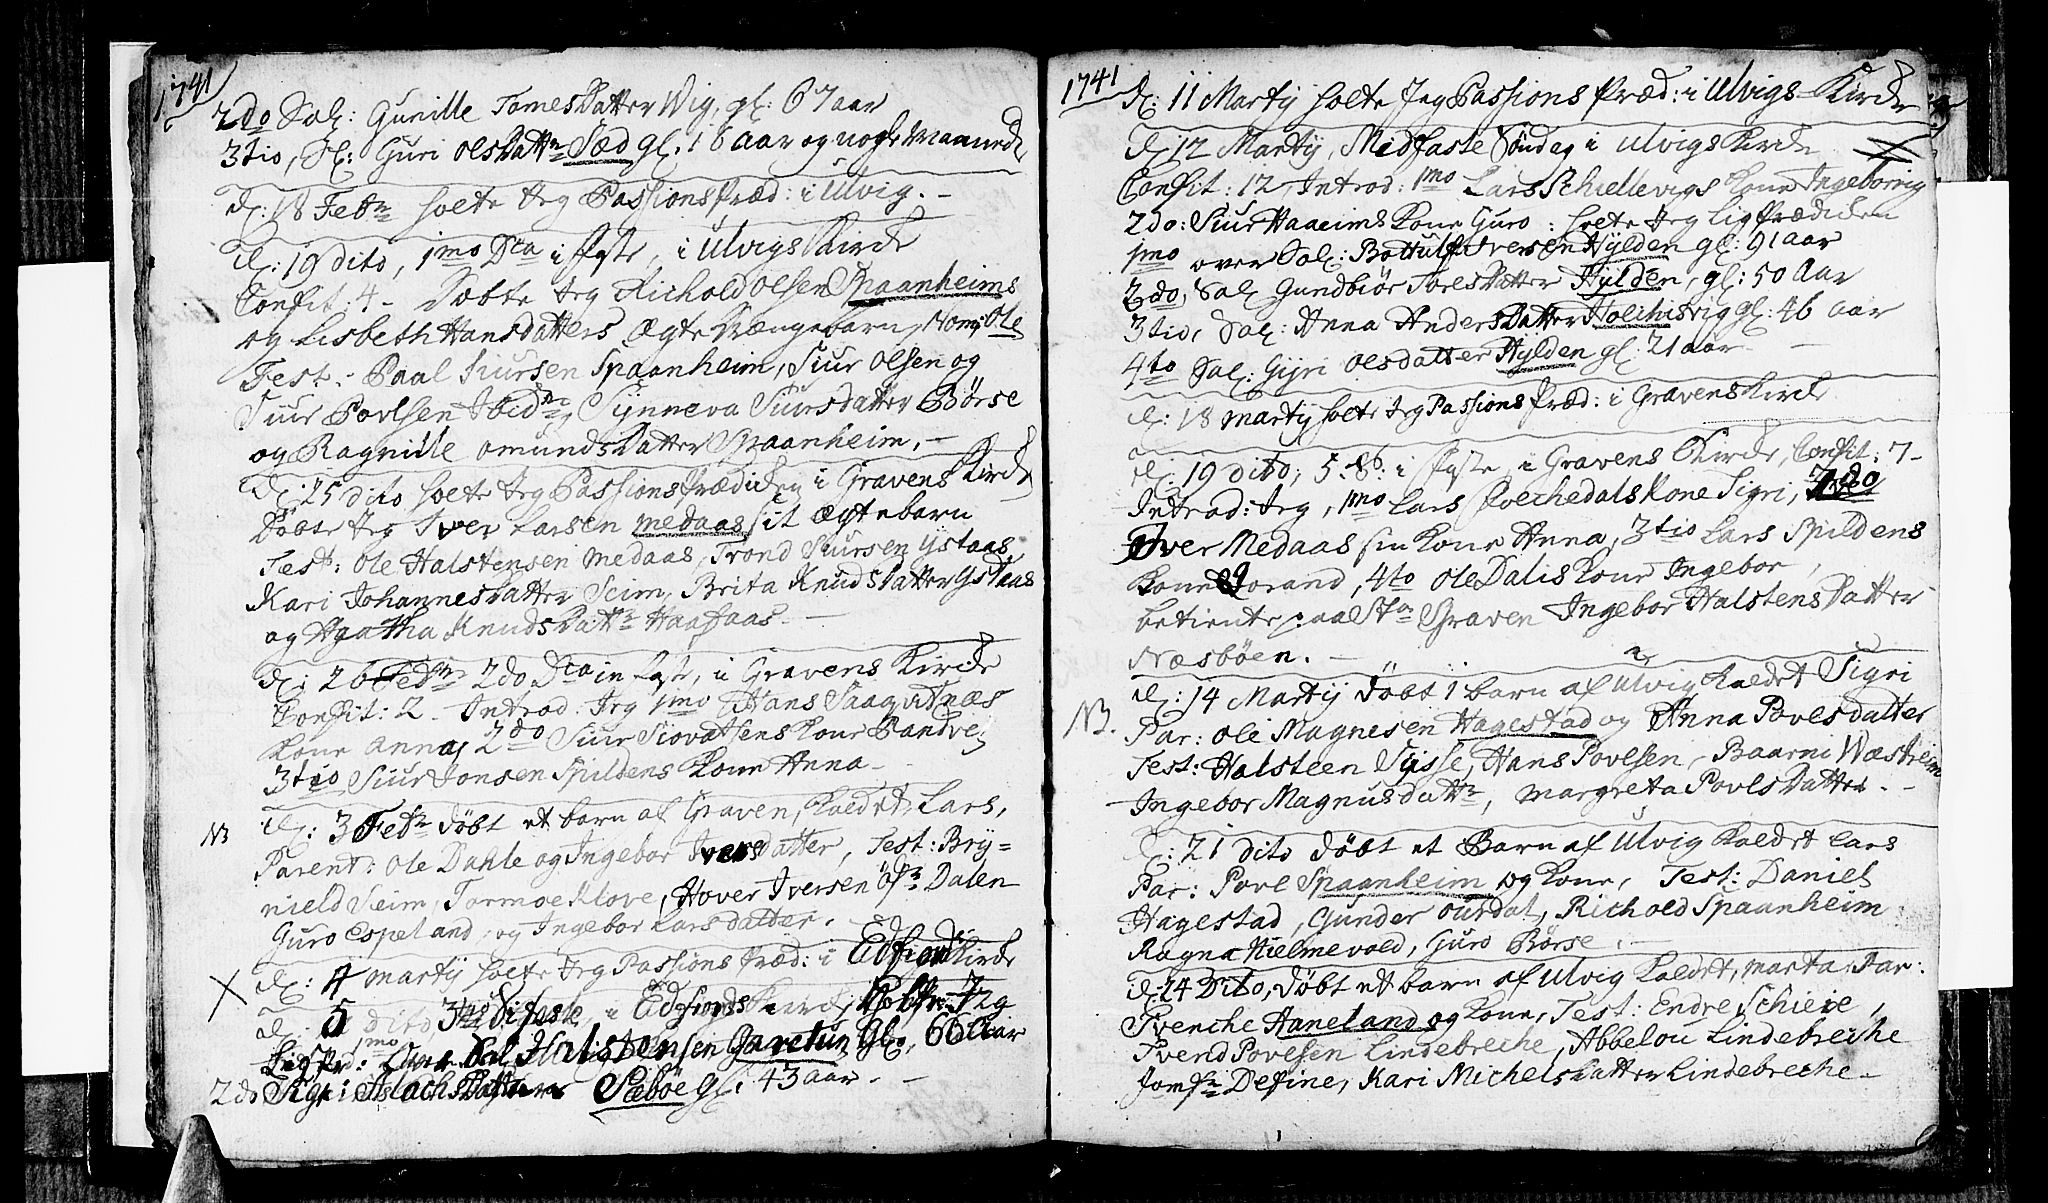 1741
2do Sal: Gunille TomesDatter Wig, gl: 67 aar
3tio, Sl: Guri olsDattr Sæd gl. 18 aar og nogle Maaneder
d: 18 Febr holte Jeg PassionsPræd: i Ulvig. -
d: 19 dito, 1mo Dca i faste, i Ulvigs Kirche
Confit: 4 - Døbte Jeg Richold olsen Spaanheims
og Lisbeth Hansdatters ægte barn, Nom: Ole
Test: Paal Siursen Spaanheim, Siur olsen og
Siur Povlsen Ibidm, Synneva Siursdatter Børse
og Ragnille omundsDatter Spaanheim. -
d: 25 dito holte Jeg Passions Prædiken i Gravens Kirche
Døbte Jeg Iver Larsen medaas sit ægte barn
Test: Ole Halstensen medaas, Trond Siursen ystaas,
Kari JohannesDatter Seim, Brita KnudsDatter Ystaas
og Agatha KnudsDattr Haasaas. -
d: 26 Febr 2do Dca in faste, i Gravens Kirche
Confit: 2. Introd. Jeg 1mo Hans Saaqvitnæs
kone Anna, 2do Siur kone
3tio Siur Jonsen Spildens kone Anna -
NB d: 3 Febr døbt et barn af Graven, kaldet Lars,
Parent: Ole Dahle og Ingebor Iversdatter, Test: Bry=
nield Seim, Tormoe Klove, Hover Iversen øfr Dalen
Guro Espeland, og Ingebor Larsdatter.
X d: 4 Martij holte Jeg PassionsPræd: i Edfiord Kirche
d: 5 dito 3tia Di faste, i Edfiords Kirche,
LigPrd: 1mo over Sal Halstensen Garetun Gl: 66 Aar
2do Sigri AslachsDatter Sæbøe gl: 43 aar. -
1741
d: 11 Martij holte Jeg Passions Præd: i Ulvigs Kirche
d: 12 Martij, Midfaste Søndag i Ulvigs Kirche
Confit: 12 Introd: 1mo Lars Schiellevigs kone Ingeborrig
2do: Siur Haaeims kone Guro: holte Jeg LigPrædichen
1mo over Sal: Bottulf Iversen Hylden gl: 91 aar
2do, Sal Gundbiør ToresDatter Hylden, gl: 50 Aar
3tio, Sal: Anna AndersDatter Holchisvig gl: 46 aar
4to Sal: Gyri olsdatter Hylden gl. 21 aar -
d: 18 martij holte Jeg PassionsPræd: i Gravens Kirche
d: 19 dito, 5. S. i faste, i Gravens Kirche, Confit: 7 -
Introd: Jeg, 1mo Lars Qvechedals kone Sigri, 2do
Iver Medaas sin kone Anna, 3tio Lars Spildens
kone Jorand, 4to Ole Dalis kone Ingebor,
betiente paa St: Graven Ingebor HalstensDatter
Næsbøen. -
NB. d: 14 Martij døbt 1 barn af Ulvig kaldet Sigri
Par: Ole Magnesen Hagestad og Anna Povlsdatter
Test: Halsteen Sysse, Hans Povlsen, Baarni Wæstreim
Ingebor Magnusdattr, Margreta PovlsDatter. -
d: 21 dito døbt et Barn af Ulvig kaldet Lars
Par: Povl Spaanheim og kone, Test: Daniel
Hagestad, Gunder ourdal, Richold Spaanheim
Ragna Hielmevold, Guro Børse. -
d: 24 Dito, døbt et barn af Ulvig kaldet, marta. Par:
Svenche Haneland og kone, Test: Endre Schieie,
Svend Povlsen Lindebreche, Abbelou Lindebreche
Jomfr Define, Kari MichelsDatter Lindebreche -